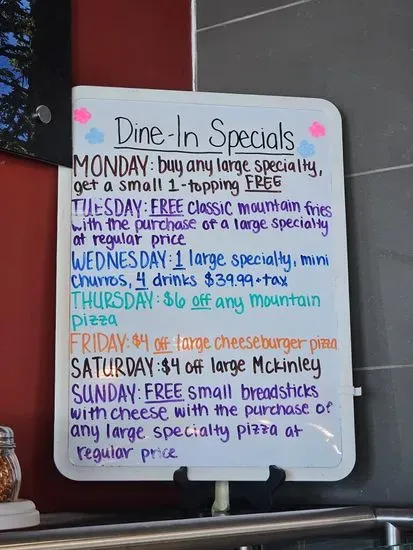 Dine-In Specials
MONDAY: buy any large specialty,
get a small 1-topping FREE
TUESDAY: FREE classic mountain fries
with the purchase of a large specialty
at regular price
WEDNESDAY: 1 large specialty, mini
churros, 4 drinks $39.99+tax
THURSDAY: $6 off any mountain
pizza
FRIDAY: $4 off large cheeseburger pizza
SATURDAY: $4 off large Mckinley
SUNDAY: FREE small breadsticks
with cheese with the purchase of
any large specialty pizza at
regular price